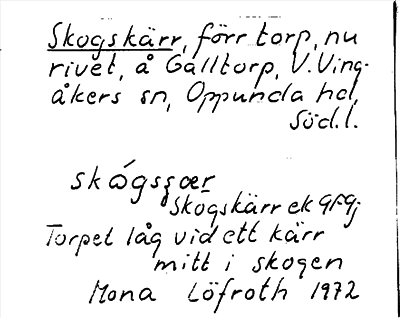 Skogskärr, förr torp, nu
rivet, å Galltorp, V. Ving-
åkers sn, Oppunda hd,
Söd. l.
Skogskärr ek
Torpet låg vid ett kärr
mitt i skogen
Mona Löfroth 1972